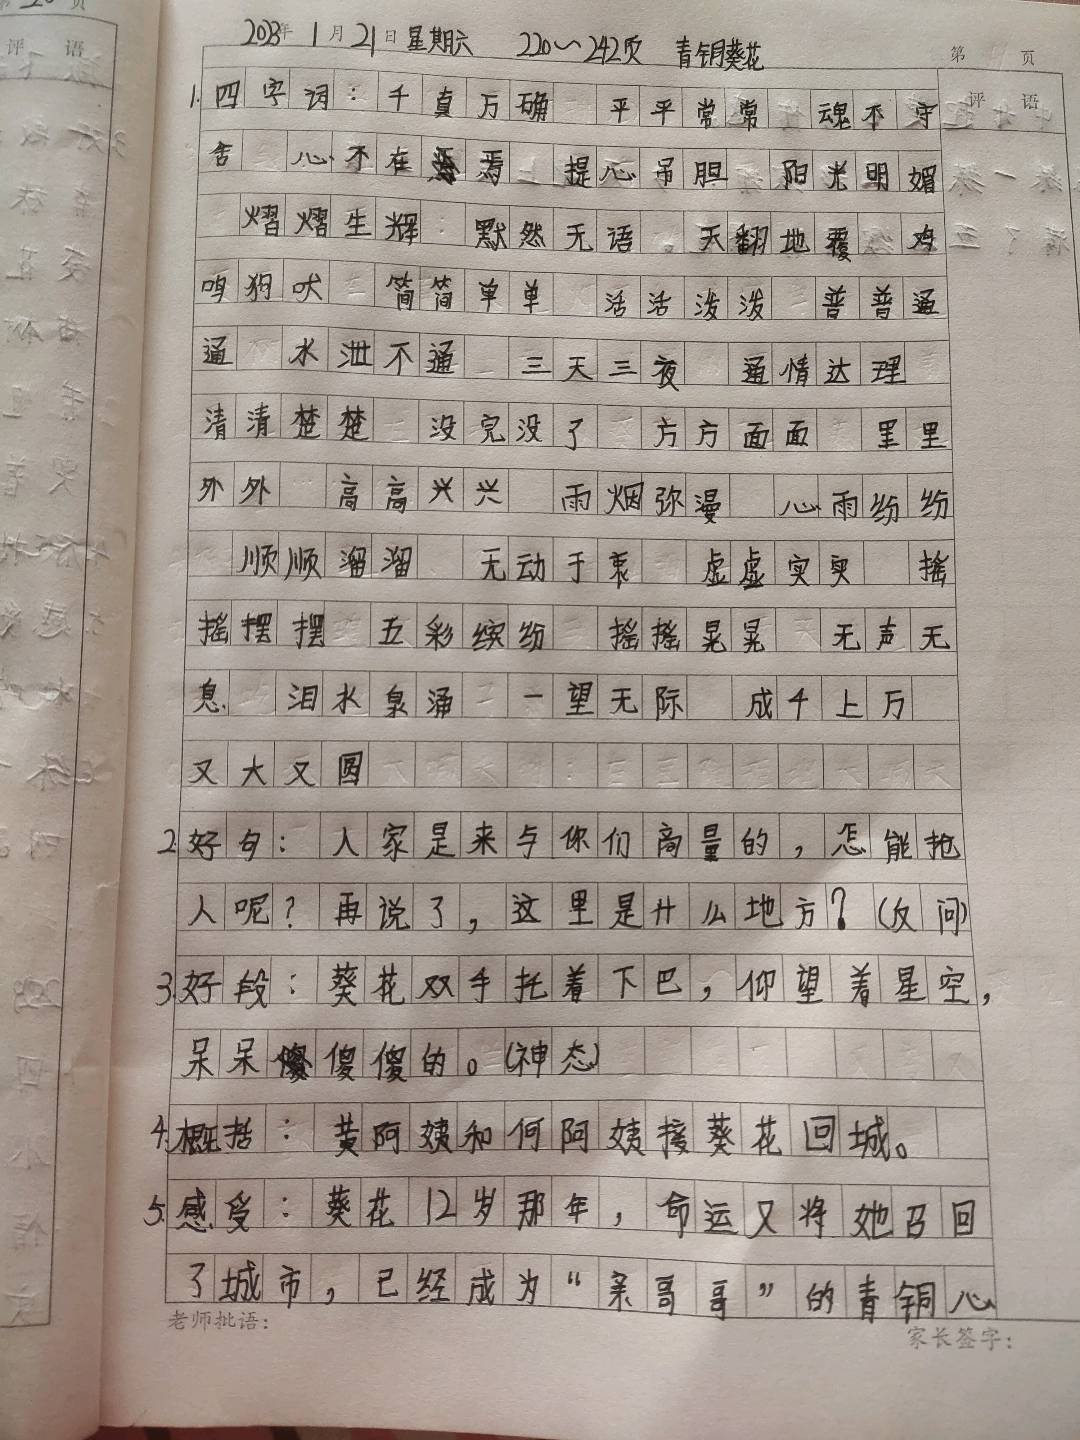 2023年1月21日星期六 220~242页 青铜葵花
第 页
评 语
1.四字词：千真万确 平平常常 魂不守
舍 心不在焉 提心吊胆 阳光明媚
熠熠生辉 默然无语。天翻地覆 鸡
鸣狗吠 简简单单 活活泼泼 普普通
通 水泄不通 三天三夜 通情达理
清清楚楚 没完没了 方方面面 里里
外外 高高兴兴 雨烟弥漫 心雨纷纷
顺顺溜溜 无动于衷 虚虚实实 摇
摇摆摆 五彩缤纷 摇摇晃晃 无声无
息 泪水泉涌 一望无际 成千上万
又大又圆
2.好句：人家是来与你们商量的，怎能抢
人呢？再说了，这里是什么地方？(反问)
3.好段：葵花双手托着下巴，仰望着星空，
呆呆傻傻的。(神态)
4.概括：黄阿姨和何阿姨接葵花回城。
5.感受：葵花12岁那年，命运又将她召回
了城市，已经成为“亲哥哥”的青铜心
老师批语：
家长签字：